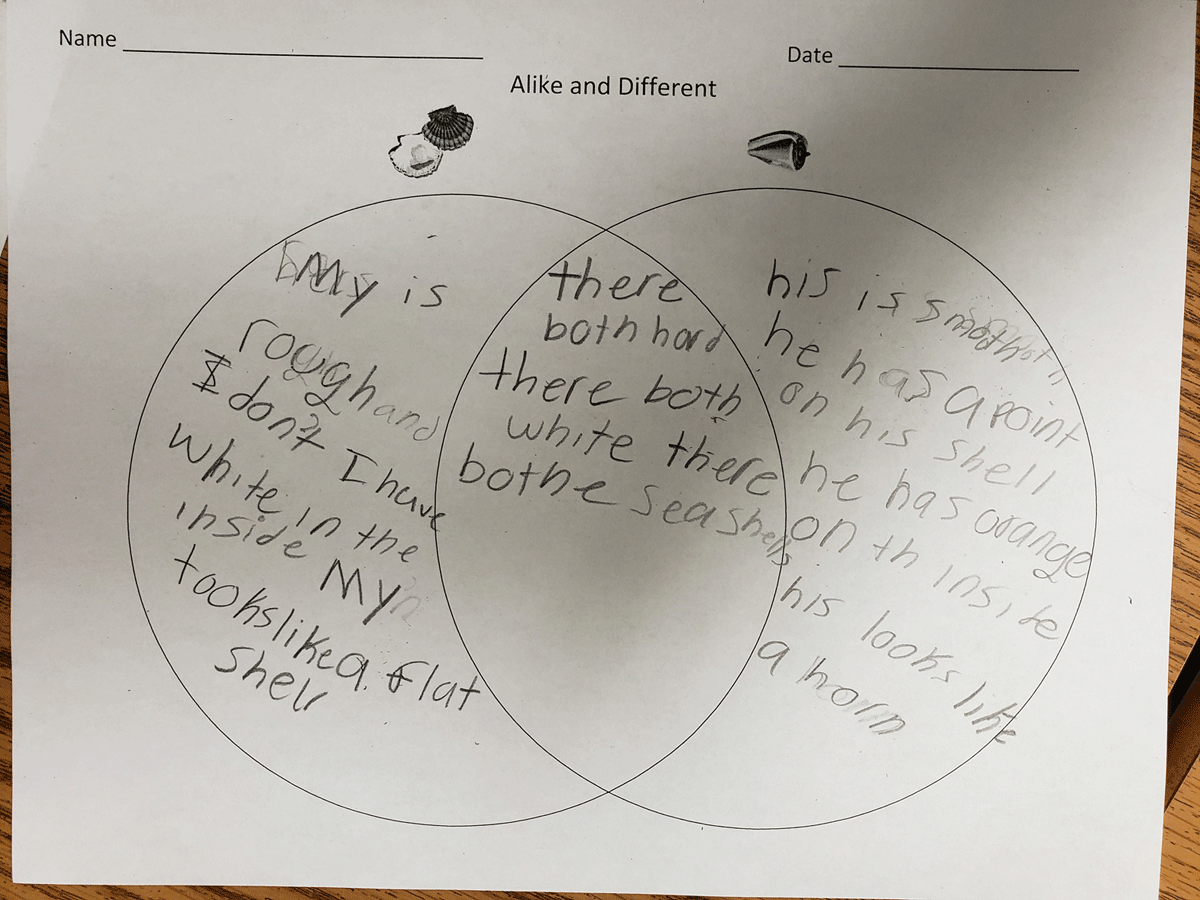 Name
Date
Alike and Different
My is
rough and
I don't I have
white in the
inside My
looks like a flat
shell
there
both hard
there both
white there
bothe sea shells
his is smooth
he has a point
on his shell
he has orange
on th insite
his looks like
a horn